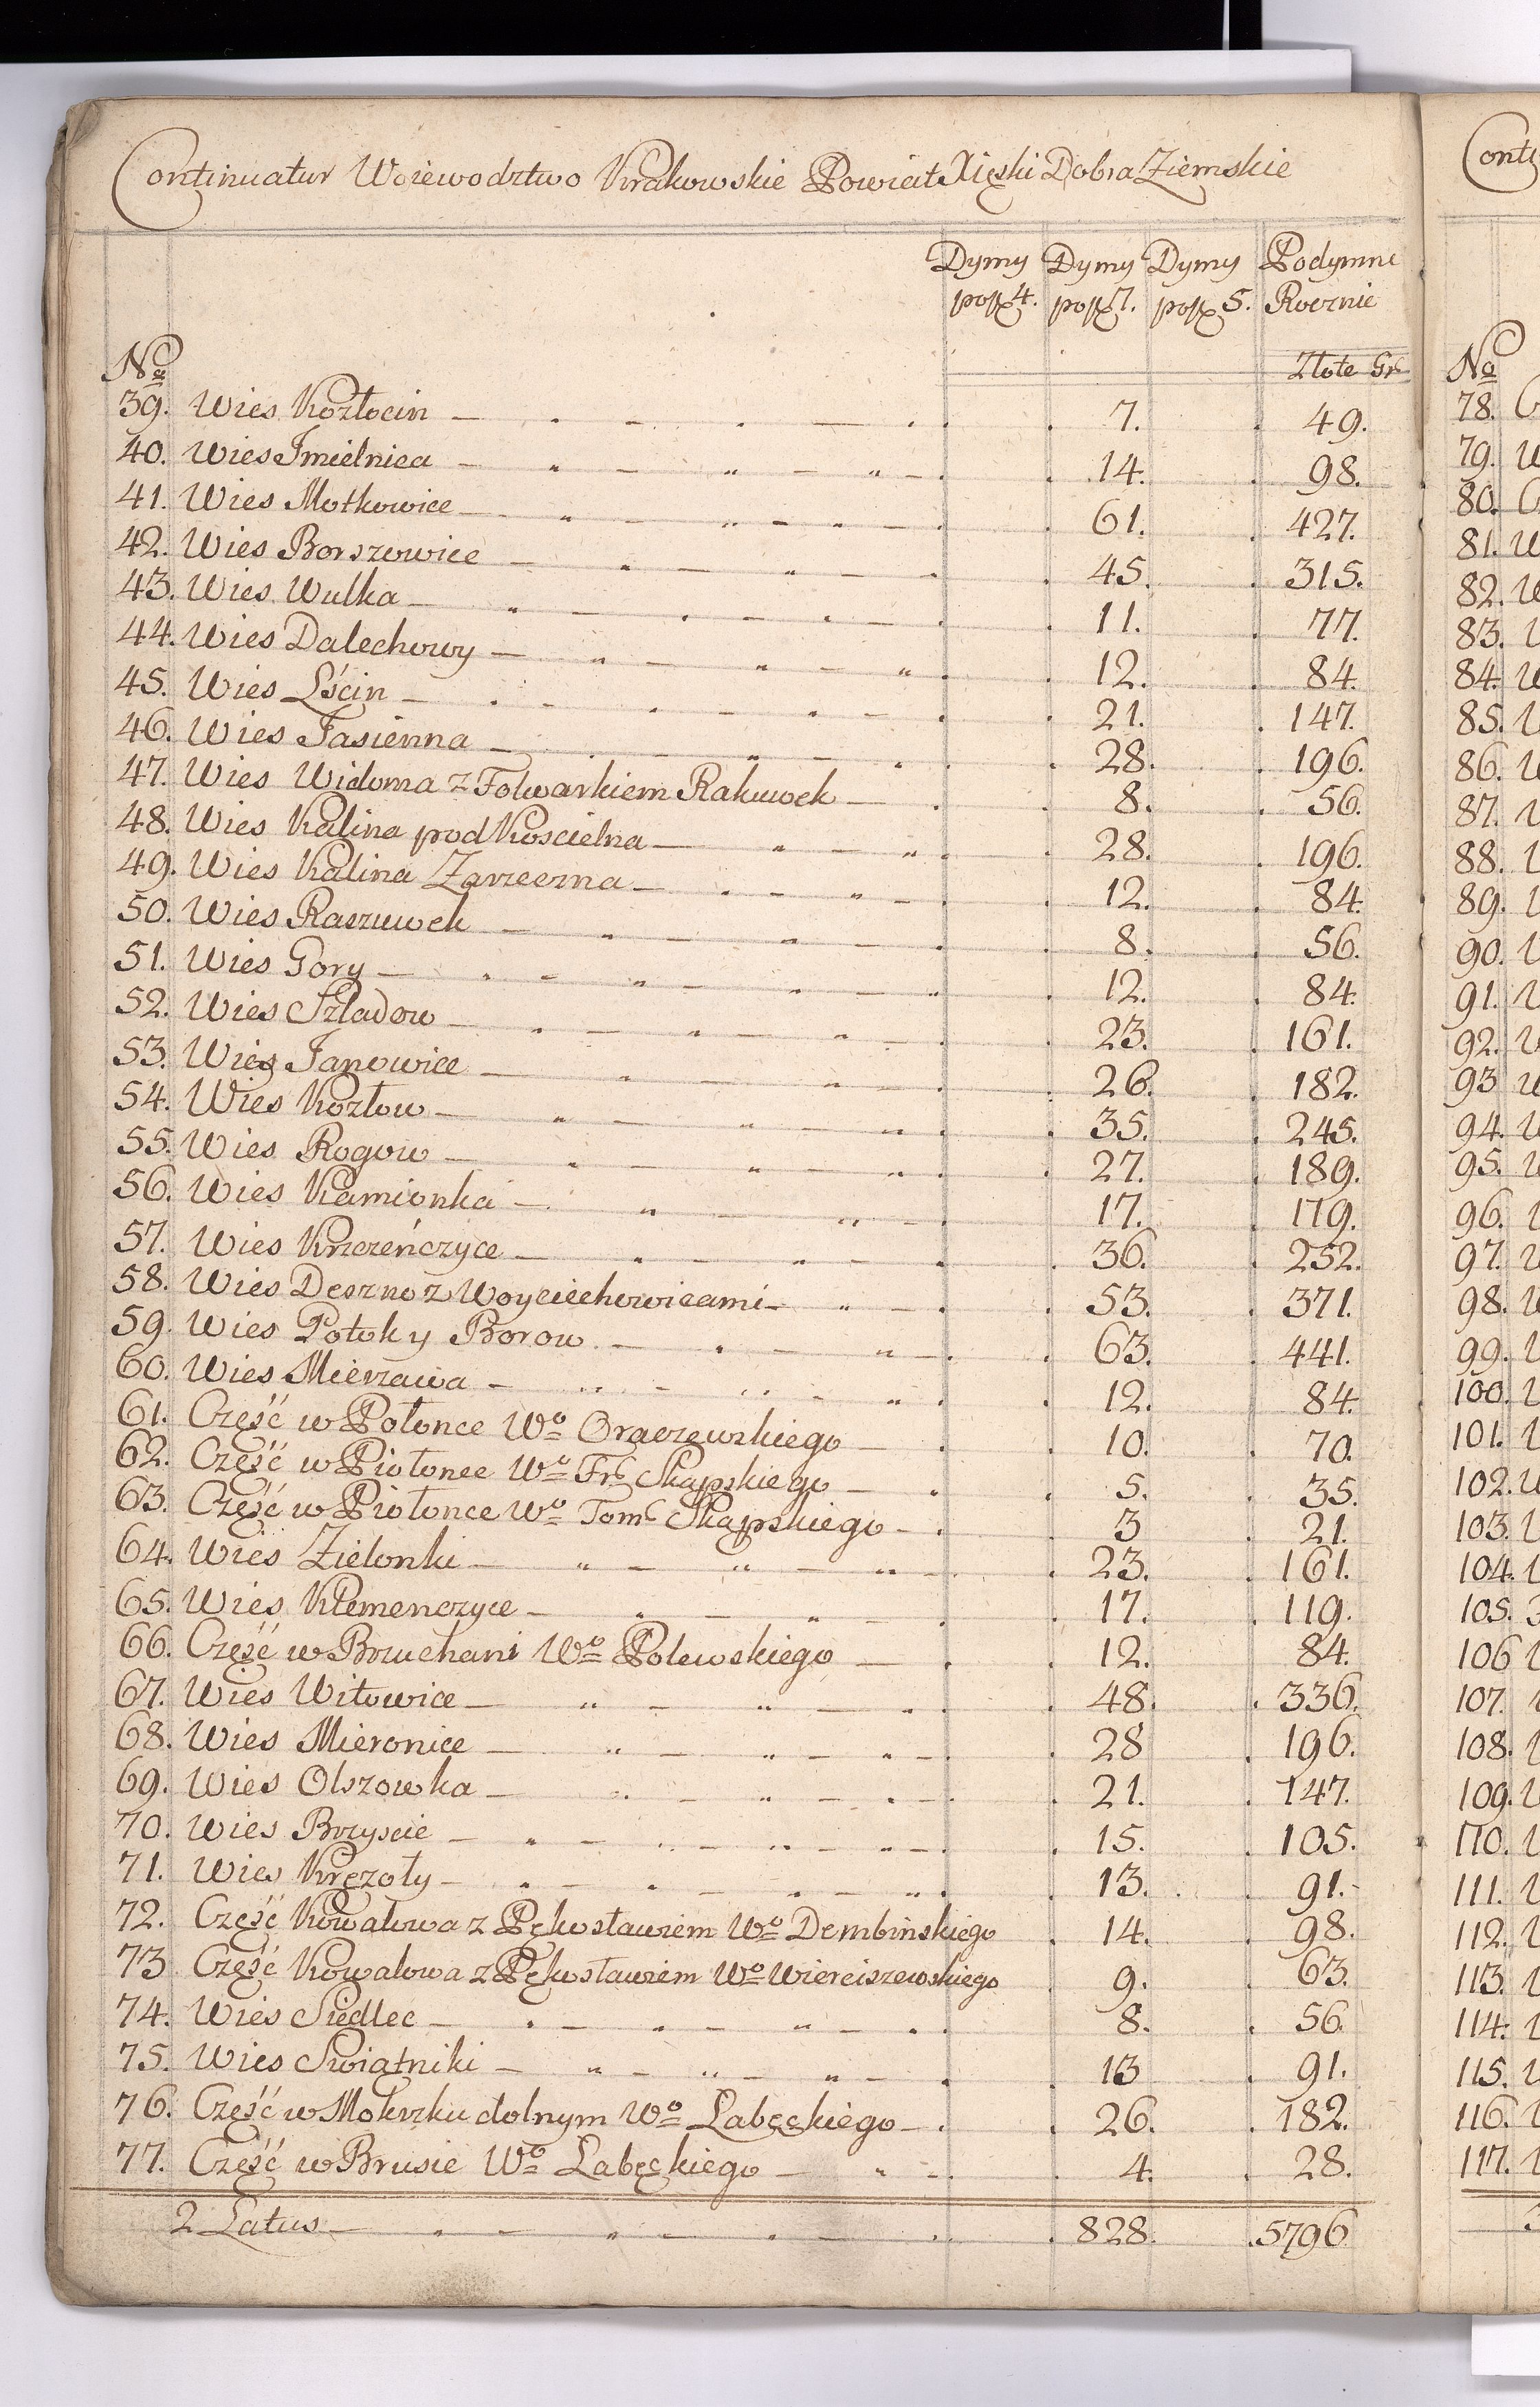 Continuatur Woiewodztwo Krakowskie Powiat Xięski Dobra Ziemskie
Dymy Dymy Dymy Podymne
po 4. po 7. po 5. Rocznie
No Złote Gr
39. Wies Kozłocin 7. 49.
40. Wies Jmielnica 14. 98.
41. Wies Motkowice 61. 427.
42. Wies Borszowice 45. 315.
43. Wies Wulka 11. 77.
44. Wies Dalechowy 12. 84.
45. Wies Lścin 21. 147.
46. Wies Jasienna 28. 196.
47. Wies Widoma z Folwarkiem Rakuwek 8. 56.
48. Wies Kalina pod Koscielna 28. 196.
49. Wies Kalina Zarzeczna 12. 84.
50. Wies Raszuwek 8. 56.
51. Wies Gory 12. 84.
52. Wies Szladow 23. 161.
53. Wies Janowice 26. 182.
54. Wies Kozłow 35. 245.
55. Wies Rogow 27. 189.
56. Wies Kamionka 17. 119.
57. Wies Krzczeńczyce 36. 252.
58. Wies Deszno z Woyciechowicami 53. 371.
59. Wies Potok y Borow 63. 441.
60. Wies Mierzawa 12. 84.
61. Część w Połonce Wo Oraczewskiego 10. 70.
62. Część w Piotonce Wo Fr Skąpskiego 5. 35.
63. Część w Piotonce Wo Tom Skąpskiego 3 21.
64. Wies Zielonki 23. 161.
65. Wies Klemenczyce 17. 119.
66. Część w Bzuchani Wo Polewskiego 12. 84.
67. Wies Witowice 48. 336.
68. Wies Mieronice 28 196.
69. Wies Olszowka 21. 147.
70. Wies Brzyscie 15. 105.
71. Wies Kręzoły 13. 91.
72. Część Kowalowa z Pękosławiem Wo Dembinskiego 14. 98.
73 Część Kowalowa z Pękosławiem Wo Wierciszewskiego 9. 63.
74. Wies Siedlec 8. 56.
75. Wies Swiątniki 13 91.
76. Część w Mokrzku dolnym Wo Łabęckiego 26. 182.
77. Część w Brusie Wo Łabęckiego 4. 28.
2 Latus 828. 5796.
Conti
No
78.
79.
80.
81.
82.
83.
84.
85.
86.
87.
88.
89.
90.
91.
92.
93
94.
95.
96.
97.
98.
99.
100.
101.
102.
103.
104.
105.
106
107.
108.
109.
110.
111.
112.
113.
114.
115.
116.
117.